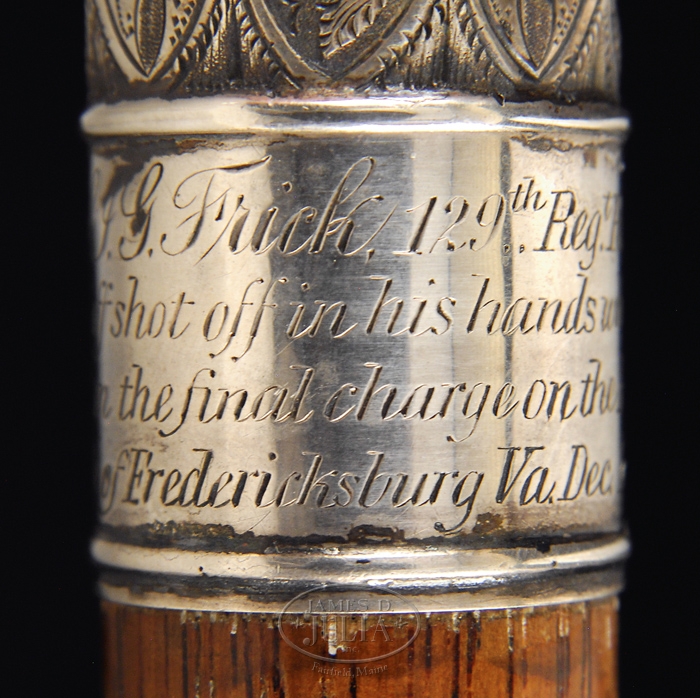 J. G. Frick, 129th Regt.
shot off in his hands
the final charge on the
of Fredericksburg Va. Dec.
JAMES D.
JULIA
Inc.
Fairfield, Maine